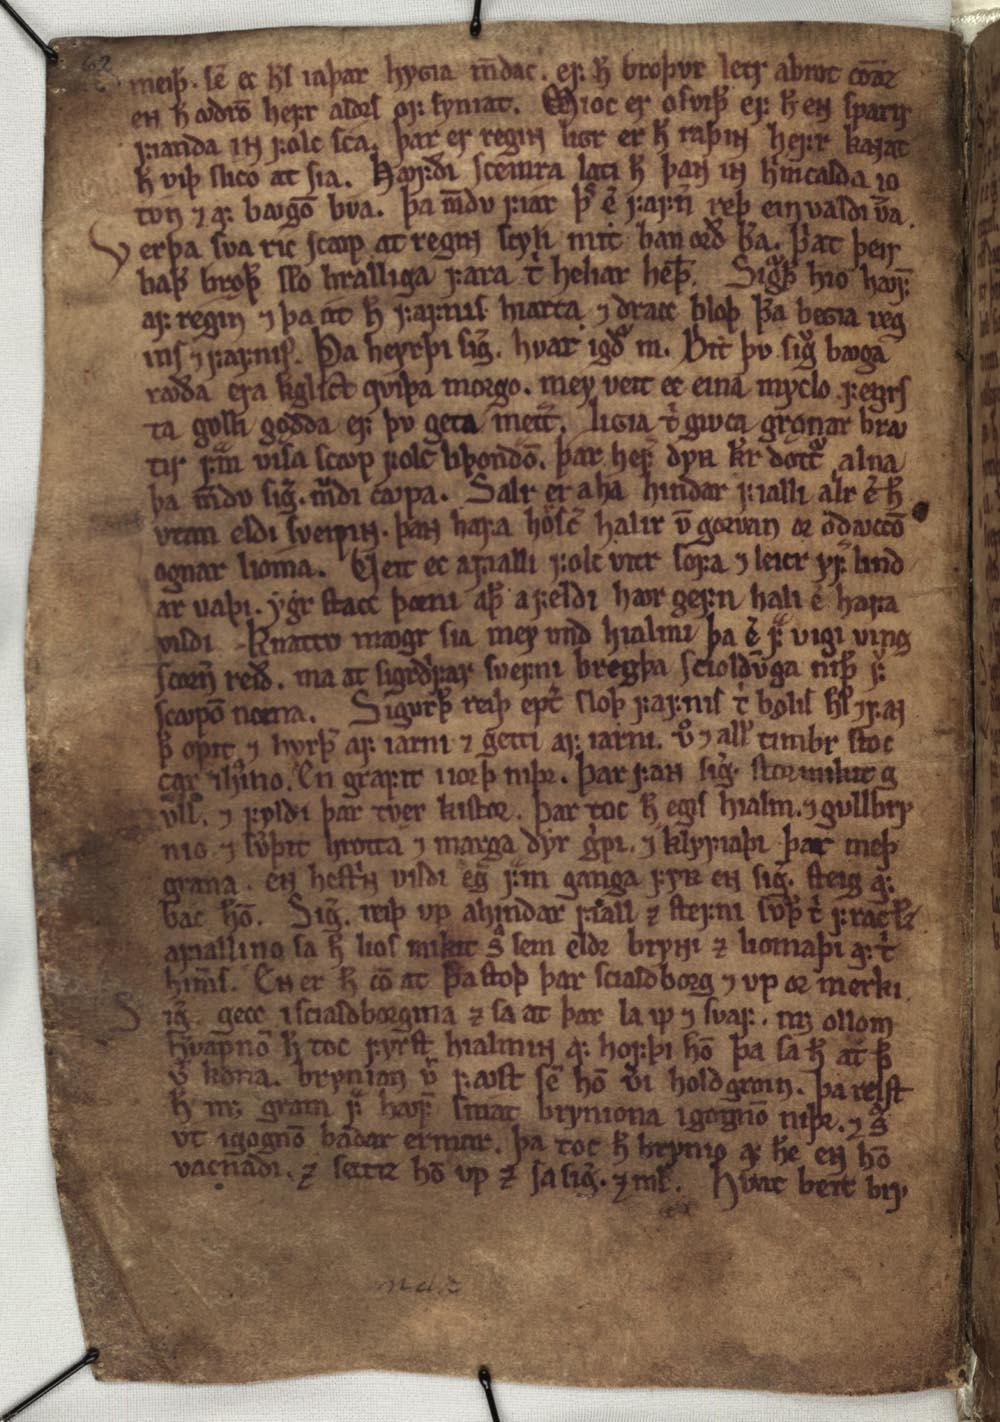 meiþ. ſē ec hſ iaþar hyGia m̄dac. eꝼ h̄ broþvr letr abrot cōaz
en h̄ ꜹdrō hefr aldrſ oꝼ ſyniat. Mioc er oſviþr eꝼ h̄ en ſparir
fianda in folc ſca. þar er regin ligr er h̄ raþin hefr kanat
h̄ viþ ſlico at ſia. Hꜹfði ſcemra lati h̄ þan in hrimcalda io
tvn ⁊ aꝼ bꜹgō bva. þa m̄dv fiar þſ̄ ē fafn̄ reþ einvaldi v̄a.
Verþa ſva ric ſcꜹp at regin ſcyli mitt ban orð b̄a. þat þeir
baþ̄ broþ̄ ſto bralliga fara t̄ heliar heþ̄. Sigþ̄ hio hꜹf̄
aꝼ regin ⁊ þa át h̄ fafniſ hiarta ⁊ dracc bloþ þ̄a beGia reg
inſ ⁊ fafniſ. Þa heyrþi ſig̊. hvar igðr̄ m. Bitt þv ſigv̄ bꜹga
rꜹða era kglict qviþa morgo. mey veit ec eina myclo fegrſ
ta gvlli gōdda eꝼ þv geta mētt̄. liGia t̄ givca grǫnar bra/
tir f̄m viſa ſcꜹp folc liþondō. þar hef̄ dyrr kr̄ dott̄ alna
þa m̄dv ſig̊. mv̄di cꜹpa. Salr er aha hindar fialli alr ē h̄
vtan eldi ſveipin. þan hafa hoſc̄ halir v̄ gorvan or ōdꜹccō
ognar lioma. Veit ec afialli folc vitr ſofa ⁊ leicr yf̄ lind
ar vaþi. ygr ſtacc þorni aþ̄ afeldi hꜹr gefn hali ē hafa
vildi. Knattv mꜹgr ſia mey vnd hialmi þa ē f̄ vigi ving
ſcorn̄ reið. ma at ſigrdrifar ſvefni bregþa ſcioldv̄ga niþ̄ f̄
ſcꜹpō norna. Sigvrþ̄ reiþ ept̄ ſloþ fafniſ t̄ bǫliſ hſ̄ ⁊ fan
þ̄ opit ⁊ hvrþ̄ aꝼ iarni ⁊ gætti aꝼ iarni. v̊ ⁊ all̄ timbr ſtoc
car ihv̄ſino. En grafit iiorþ niþr. Þar fan ſig̊. ſtormikit g
vll. ⁊ fyldi þar tver kiſtor. Þar toc h̄ egiſ hialm. ⁊ gvllbry
nio ⁊ ſv̄þit hrotta ⁊ marga dyr gpi. ⁊ klyfiaþi þar meþ
grana. en heſtrin vildi eḡ f̄m ganga fyrr en ſig̊. ſteig aꝼ
bac hō. Sig̊. reiþ vp ahindar fiall ⁊ ſtefni ſvþ̄ t̄ fraclz
afiallino ſa h̄ lioſ mikit ſ̄ ſem eldr bryni ⁊ liomaþi aꝼ t̄
himſ. En er h̄ cō at þ̄a ſtoþ þar ſcialdborg ⁊ vp or merki.
Sig̊. gecc iſcialdborgina ⁊ ſa at þar la ꝩ ⁊ ſvaf. m; ollom
hvapnō h̄ toc fyrſt hialmin aꝼ hofþi hō þa ſa h̄ at þ̄
v̊ kona. brynian v̊ fꜹſt ſē hō v̄i holdgroin. þa reiſt
h̄ m; gram f̄ hꜹf̄ ſmat bryniona igognō niþr. ⁊ ſ̄
vt igognō baðar ermar. þa toc h̄ brynio aꝼ h̄e en hō
vacnaði. ⁊ ſettiz hō vp ⁊ ſa ſig̊. ⁊ mſ̄. Hvat beit bry